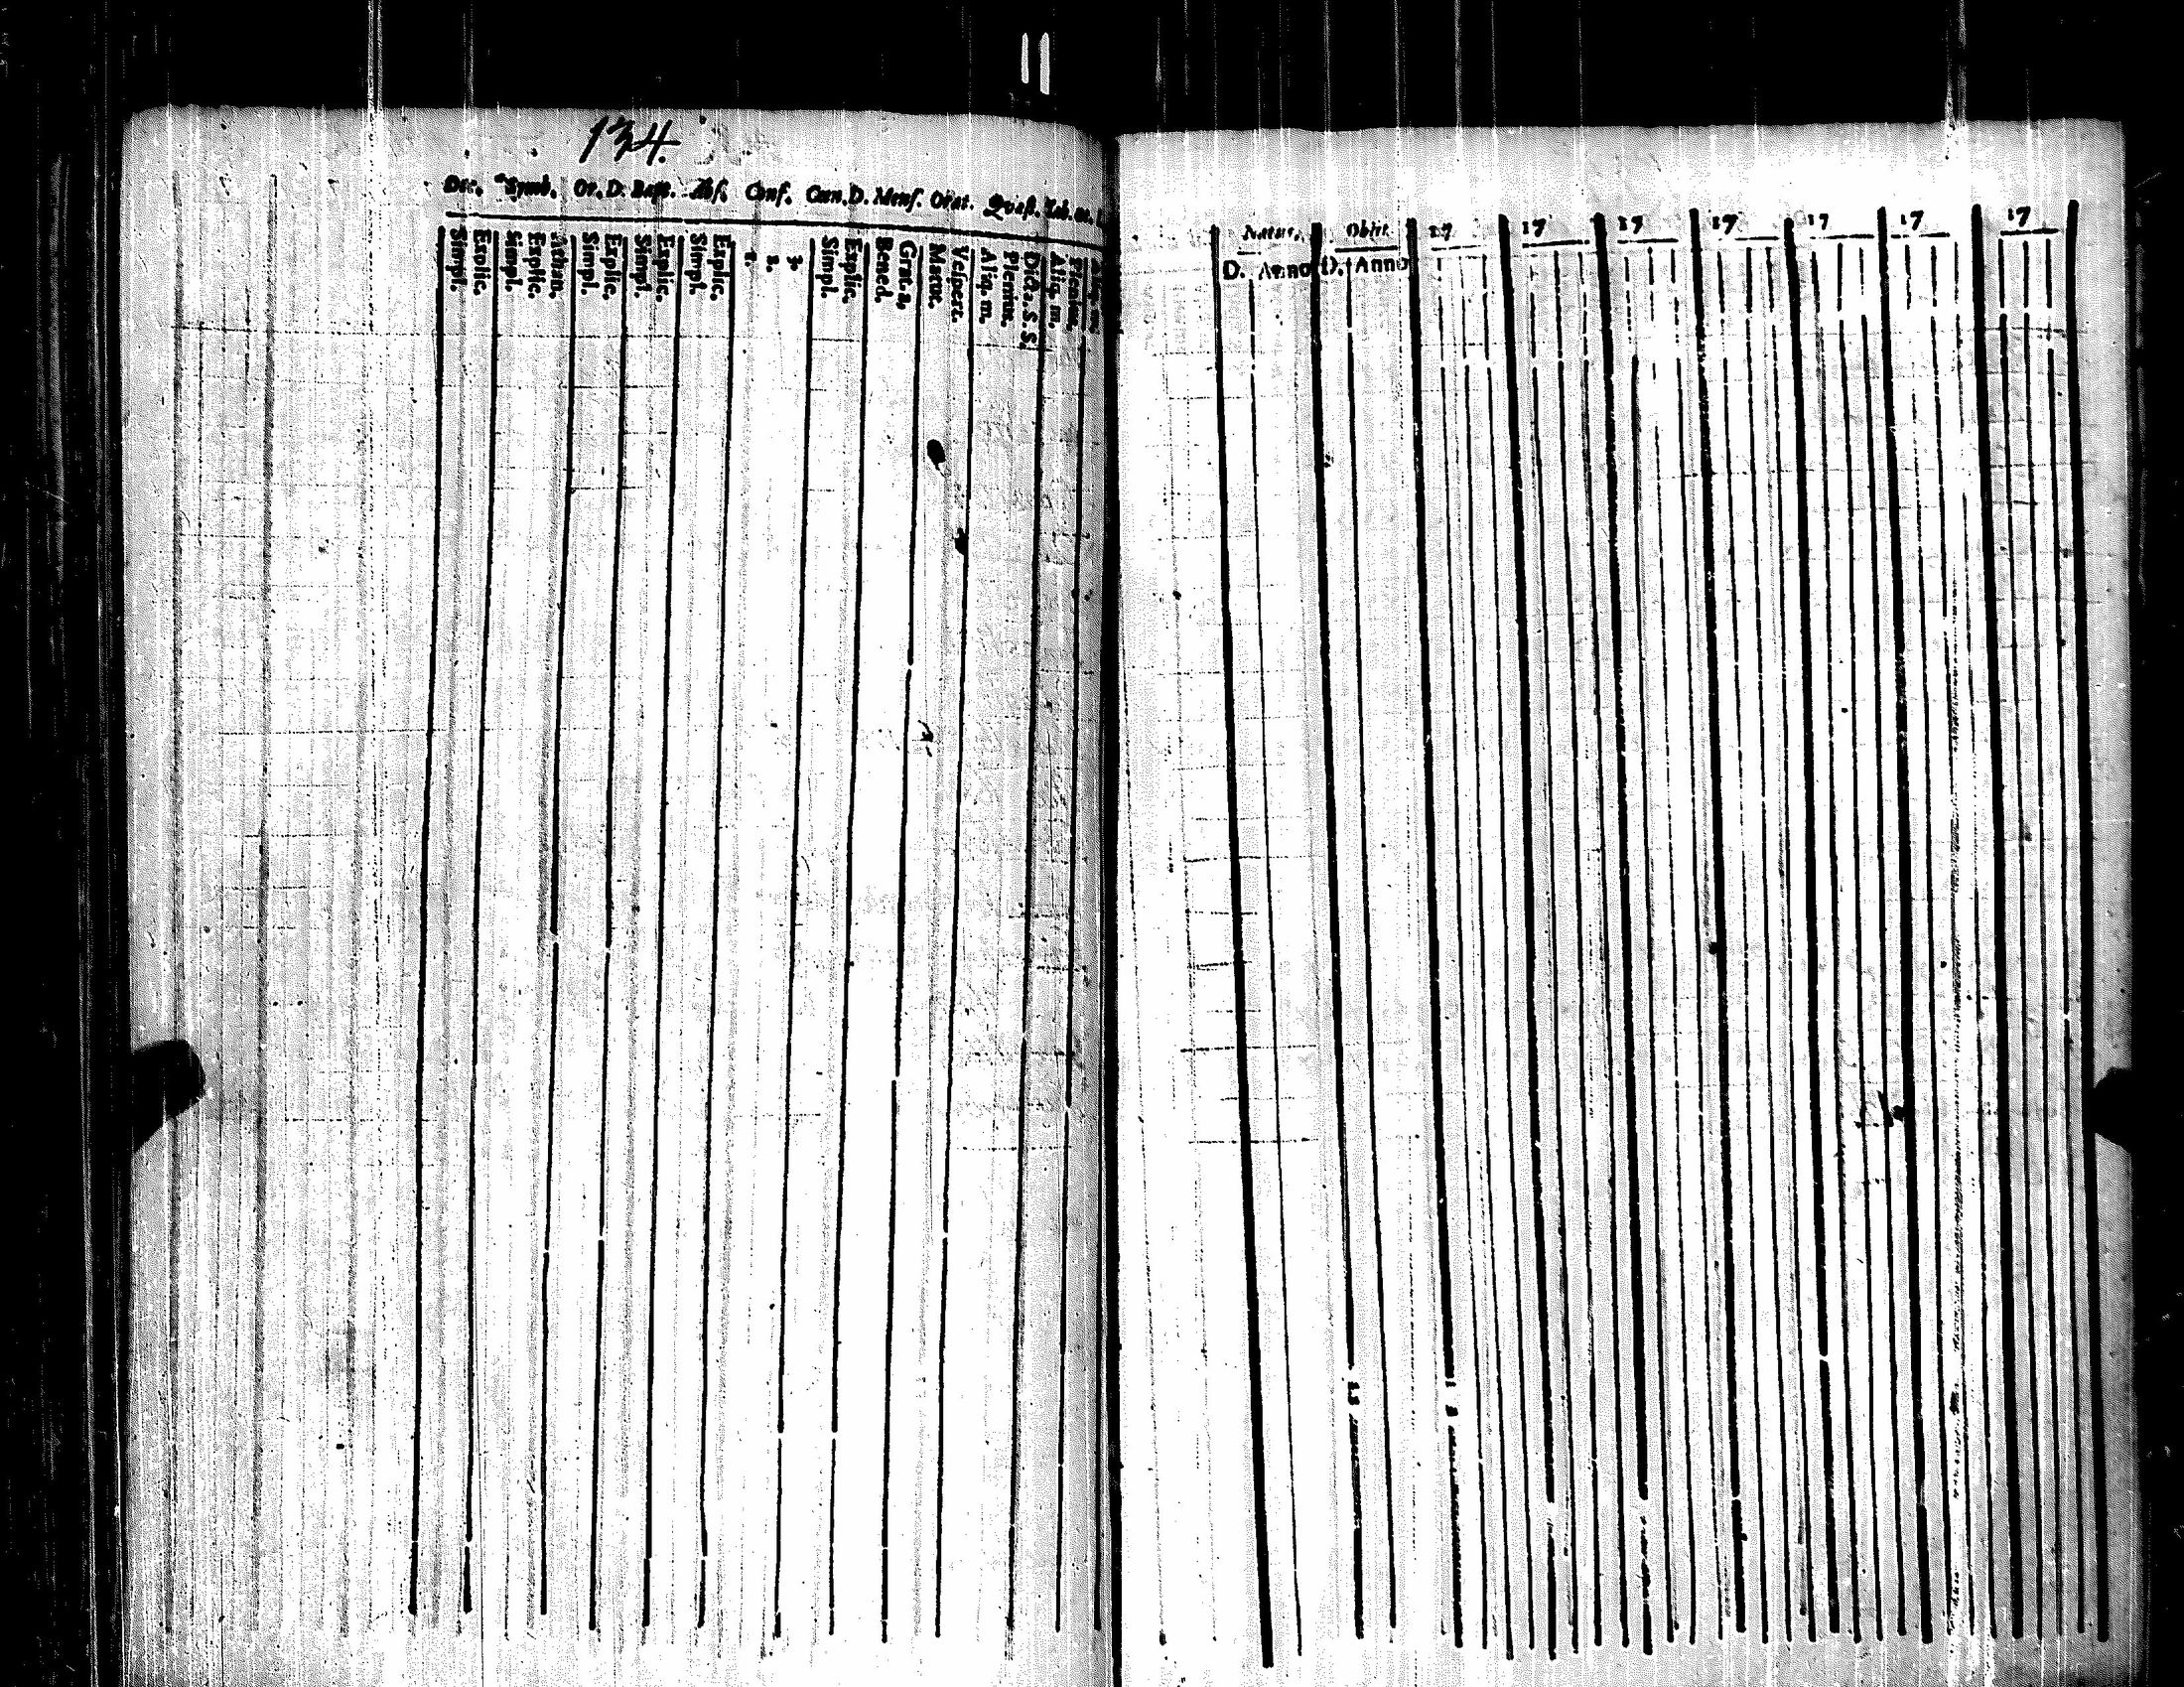 134.
Dec. Symb. Or. D. Bapt. Abs. Conf. Cœn. D. Mens. Orat. Quæst. Tab. œc.
Simpl.
Explic.
Simpl.
Explic.
Athan.
Simpl.
Explic.
Simpl.
Explic.
Simpl.
Explic.
1.
2.
3.
Simpl.
Explic.
Bened.
Grat. a.
Matut.
Vespert.
Aliq. m.
Plenius.
Dicta. S. S.
Aliq. m.
Plenius.
Aliq. m.
Natus. Obiit. 17 17 17 17 17 17 17
D. Anno D. Anno